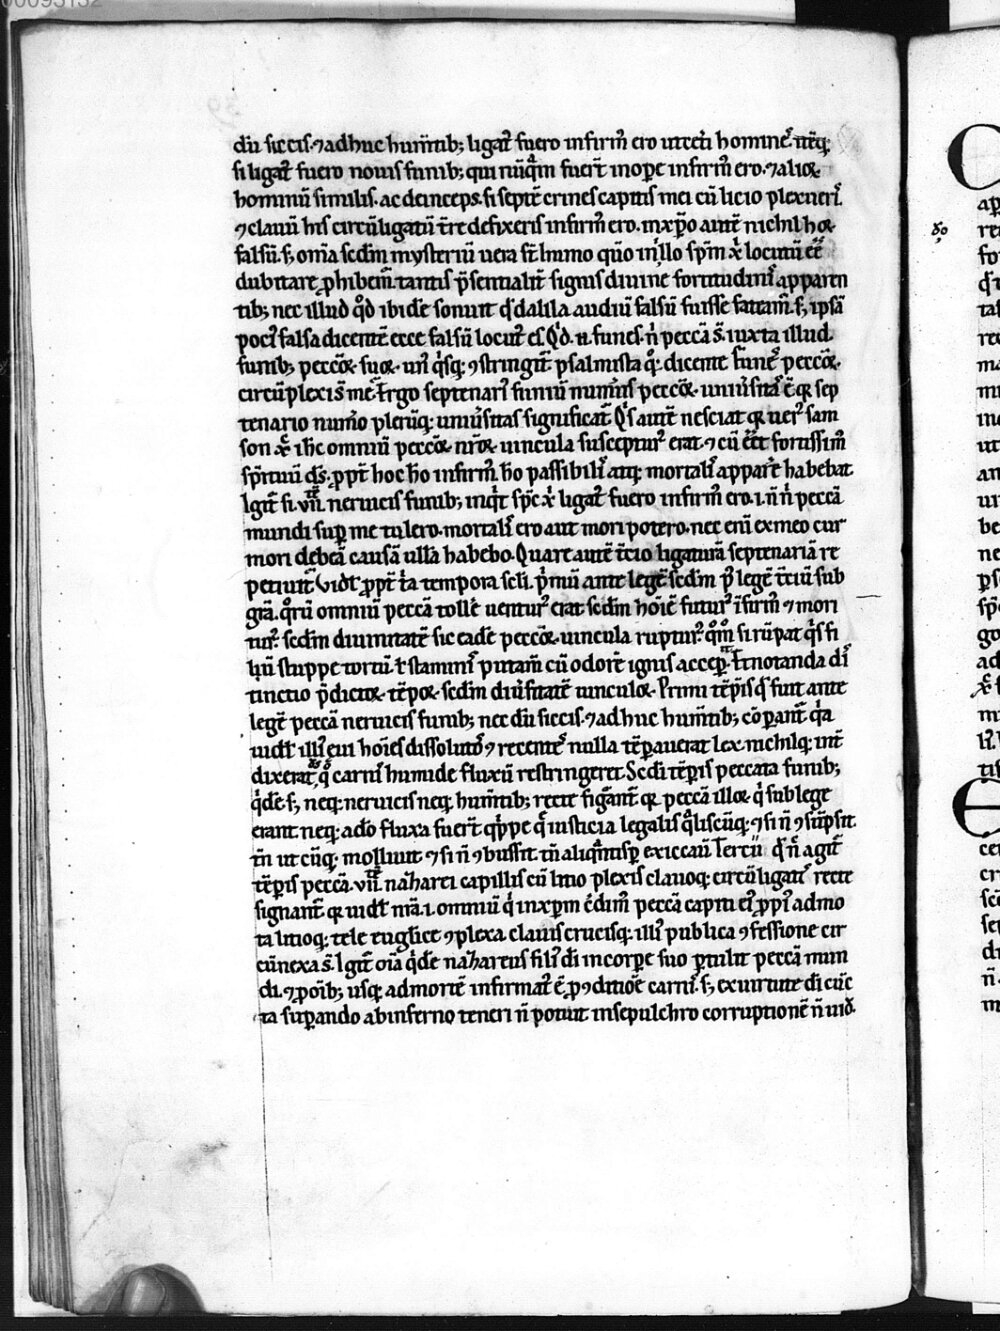 dū siccis ⁊ adhuc humētib; ligat᷑ fuero infirm᷑ ero ut cet̉i homines. neq;
si ligat᷑ fuero nouis funib; qui nūq̄m fuer̄t in ope infirm᷑ ero. ⁊ alioꝝ
hominū similis. ac deinceps. si septē crines capitis mei cū licio plexueris
⁊ clauū his circūligatū t̄re defixeris infirm᷑ ero. in xp̄o autē nichil hoꝝ
falsū. s; om̄ia sc̄dm mysteriū uera st̄. Immo qūo in illo sp̄m xp̄i locutū eē̄
dubitare ꝓhibem᷑ tantis p̄sentialit᷑ signis diuine fortitudinis apparen
tib; nec illud qd̄ ibidē sonuit qd̄ dalila audiuit falsū fuisse fateam̄. s; ipsā
poci᷑ falsa dicentē ecce falsū locut᷑ es. Qd̄. n. funes n̄ peccā s̄. iuxta illud.
funib; peccōꝝ suoꝝ un᷑ q̄sq; ⁊stringit᷑. psalmista qq;. dicente funes peccōꝝ.
circūplexi s̄ me. Ergo septenari᷑ funiū numerus peccōꝝ uniūsitas ē. q̄ sep
tenario num̄o plerūq; uniūsitas significat᷑. Q̄s autē nesciat qꝫ uer᷑ sam
son xp̄c ih̄c omniū peccōꝝ nr̄oꝝ uincula suscepturus erat. ⁊ cū eēt fortissim᷑
sp̄irituū ds̄. ꝓpt̄ hoc h̄o infirm᷑ h̄o passibilis atq; mortalis apparē habebat
Igit᷑ si vii. neruicis funib; inq̇t sp̄c xp̄i ligat᷑ fuero infirm᷑ ero. i. n̄ n̄ peccā
mundi sup me tulero. mortalis ero aut mori potero. nec eni ex meo cur
mori debeā causā ullā habebo. Quare autē t̄cio ligaturā septenariā re
petiuit᷑. Vidt̄ ꝓpt̄ t̄a tempora sc̄li. p̄mū ante legē sc̄dm ꝓ legē t̄ciū sub
grā. quorū omniū peccā tollē uentur᷑ erat sc̄dm hoīē futur᷑ īfirm᷑ ⁊ mori
tur᷑. sc̄dm diuinitatē sic eadē peccōꝝ uincula ruptur᷑. quōm si rūpat q̄s fi
lū stuppe tortū t̄ staminis putam̄ cū odorē ignis accep. Et notanda dis
tinctio p̄dictoꝝ tēpoꝝ sc̄dm diūsitatē uinculoꝝ. Primi tēpis qd̄ fuit ante
legē peccā neruicis funib; nec dū siccis. ⁊ adhuc humētib; cōparant᷑ q̄a
uidt̄ illi᷑ eui hoīes dissolutos ⁊ recentes nulla tēperauerat lex. nichilq; int̄
dixerat, qd̄ carnis humide fluxū restringeret. Sc̄di tēpis peccata funib;
q̄dē s; neq; neruicis neq; humētib; recte figānt᷑ qꝫ peccā illoꝝ q̄ sub lege
erant neq; adō fluxa fuer̄t q̇ppe q̄ iusticia legalis q̄liscūq; ⁊ si n̄ ⁊sūpsit.
tn̄ utcūq; molliuit ⁊ si n̄ ⁊bussit tn̄ aliqn̄tisꝑ exiccauit. Tercii qd̄ n̄c agit᷑
tēpis peccā. vii. nazarei capillis cū licio plexis clauoq; circūligatis recte
signant᷑ qꝫ uidt̄ m̄a. i. omniū q̄ in xp̄m c̄dim᷑ peccā capiti ei᷑ ꝓpi᷑ admo
ta licioq; tele euglice ⁊plexa clauis crucisq; illi᷑ publica ⁊fessione cir
cūnexa s̄. Igit᷑ oīa q̄dē nazareus fili᷑ di in corpe suo ꝑtulit peccā mun
di. ⁊ ꝓ oīb; usq; ad mortē infirmat᷑ ē ꝓ ⁊ditiōe carnis. s; ex uirtute di cūc
ta supando ab inferno teneri n̄ potuit in sepulchro corruptionē n̄ uid̄.